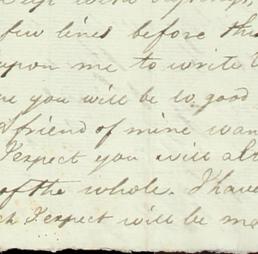 few lines before the
upon me to write
you will be so good
friend of mine wan
I expect you will al
of the whole. I have
ch I expect will be me